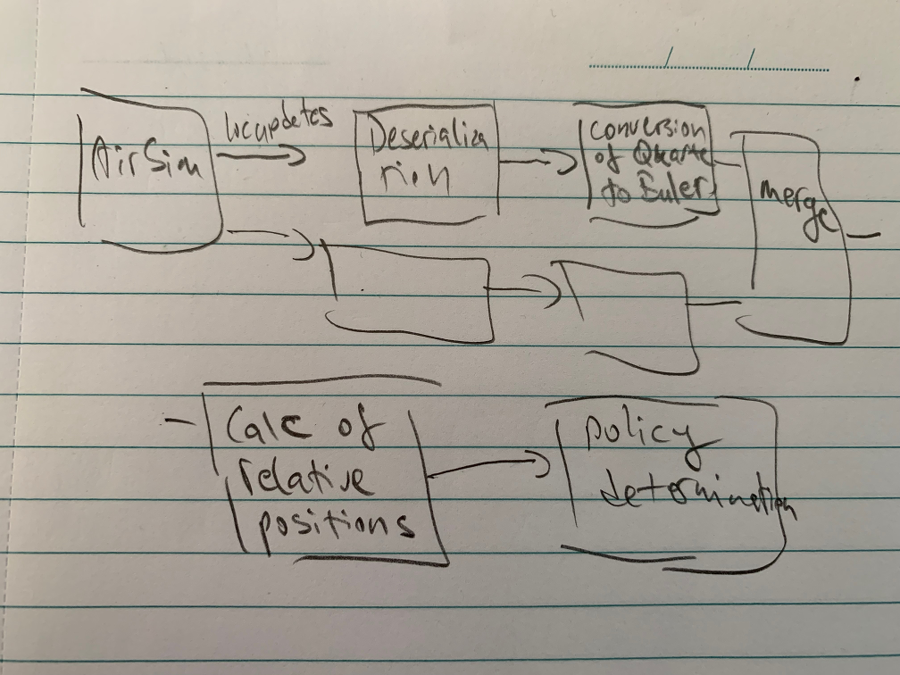 AirSim
locupdates
Deserializa
tion
Conversion
of Quarte
to Euler
merge
Calc of
relative
positions
policy
determination